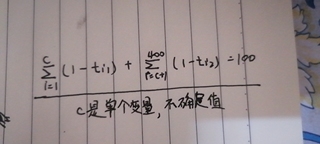 $\sum_{i=1}^{c} (1-t_{i1}) + \sum_{i=c+1}^{400} (1-t_{i2}) = 100$
c是单个变量，不确定值